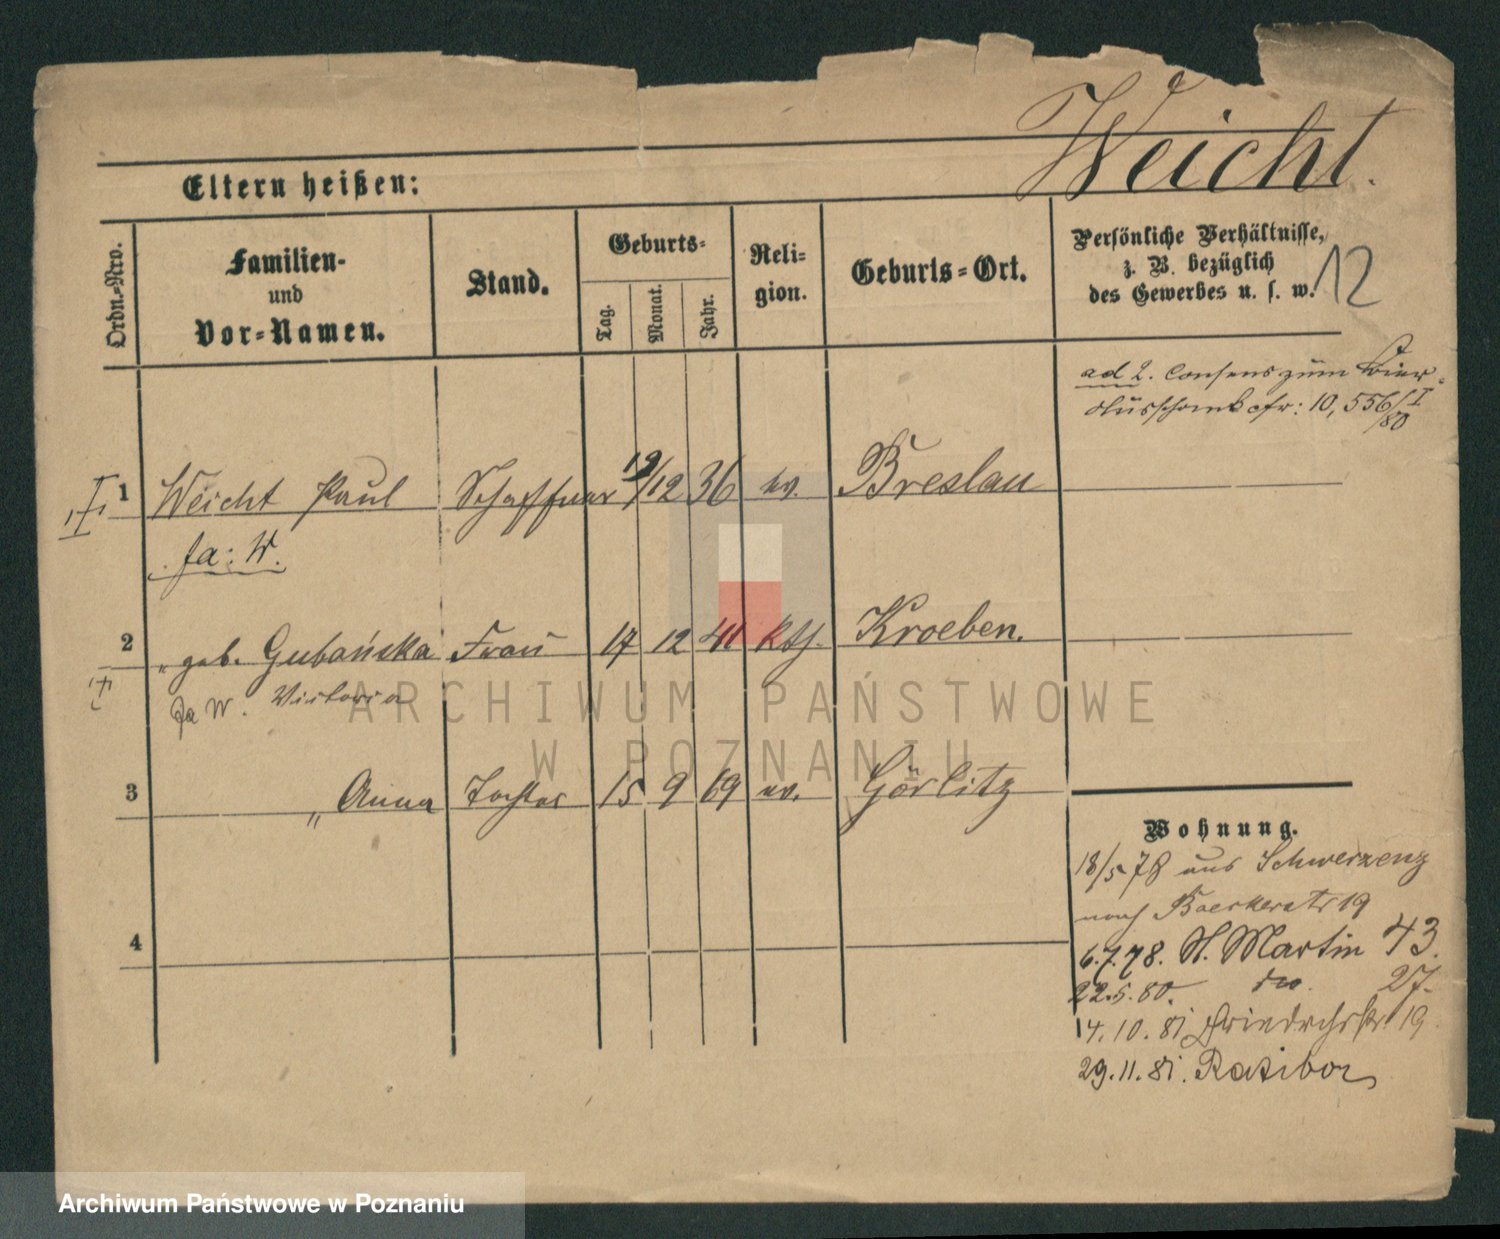 Weicht.
Eltern heißen:
Ordn.-Nro.
Familien-
und
Vor-Namen.
Stand.
Geburts-
Tag.
Monat.
Jahr.
Reli-
gion.
Geburts-Ort.
Persönliche Verhältnisse,
z. B. bezüglich
des Gewerbes u. s. w.
12
ad 2. Consens zum Bier-
ausschank cfr: 10,556/I
/80
1 Weicht Paul Schaffner 19/12 36 ev. Breslau
fa: W.
2 " geb. Gubańska Frau 17 12 41 kth. Kroeben.
fa W. Victoria
3 " Anna Tochter 15 9 69 ev. Görlitz
4
Wohnung.
18/5 78 aus Schwersenz
nach Baeckerstr 19
6.7.78. St. Martin 43.
22.5.80. do. 27.
14.10.81 Friedrichstr 19
29.11.81. Ratibor
ARCHIWUM PAŃSTWOWE
W POZNANIU
Archiwum Państwowe w Poznaniu